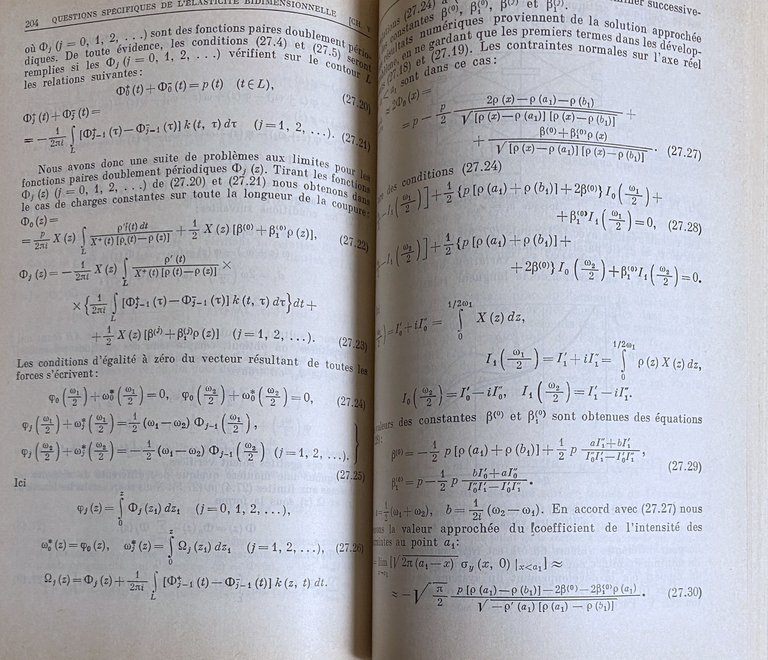 204 QUESTIONS SPÉCIFIQUES DE L'ÉLASTICITÉ BIDIMENSIONNELLE [CH. V
où Φⱼ (j = 0, 1, 2, . . .) sont des fonctions paires doublement pério-
diques. De toute évidence, les conditions (27.4) et (27.5) seront
remplies si les Φⱼ (j = 0, 1, 2, . . .) vérifient sur le contour L
les relations suivantes:
Φ₀⁺ (t) + Φ₀⁻ (t) = p (t) (t ∈ L), (27.20)
Φⱼ⁺ (t) + Φⱼ⁻ (t) =
= − 1/2πi ∫_L [Φ⁺ⱼ₋₁ (τ) − Φ⁻ⱼ₋₁ (τ)] k (t, τ) dτ (j = 1, 2, . . .). (27.21)
Nous avons donc une suite de problèmes aux limites pour les
fonctions paires doublement périodiques Φⱼ (z). Tirant les fonctions
Φⱼ (z) (j = 0, 1, 2, . . .) de (27.20) et (27.21) nous obtenons dans
le cas de charges constantes sur toute la longueur de la coupure:
Φ₀ (z) =
= p/2πi X (z) ∫_L ρ′(t) dt / X⁺ (t) [ρ (t) − ρ (z)] + 1/2 X (z) [β⁽⁰⁾ + β₁⁽⁰⁾ρ (z)], (27.22)
Φⱼ (z) = − 1/2πi X (z) ∫_L ρ′ (t) / X⁺ (t) [ρ (t) − ρ (z)] ×
× {1/2πi ∫_L [Φ⁺ⱼ₋₁ (τ) − Φ⁻ⱼ₋₁ (τ)] k (t, τ) dτ} dt +
+ 1/2 X (z) [β⁽ʲ⁾ + β₁⁽ʲ⁾ρ (z)] (j = 1, 2, . . .). (27.23)
Les conditions d'égalité à zéro du vecteur résultant de toutes les
forces s'écrivent:
φ₀ (ω₁/2) + ω₀* (ω₁/2) = 0, φ₀ (ω₂/2) + ω₀* (ω₂/2) = 0, (27.24)
φⱼ (ω₁/2) + ωⱼ* (ω₁/2) = 1/2 (ω₁ − ω₂) Φⱼ₋₁ (ω₁/2),
φⱼ (ω₂/2) + ωⱼ* (ω₂/2) = − 1/2 (ω₁ − ω₂) Φⱼ₋₁ (ω₂/2) (j = 1, 2, . . .). } (27.25)
Ici
φⱼ (z) = ∫₀ᶻ Φⱼ (z₁) dz₁ (j = 0, 1, 2, . . .),
ω₀* (z) = φ₀ (z), ωⱼ* (z) = ∫₀ᶻ Ωⱼ (z₁) dz₁ (j = 1, 2, . . .), (27.26)
Ωⱼ (z) = Φⱼ (z) + 1/2πi ∫_L [Φ⁺ⱼ₋₁ (t) − Φ⁻ⱼ₋₁ (t)] k (z, t) dt.
(27.24)
successive-
constantes β⁽⁰⁾, β₁⁽⁰⁾, β⁽ʲ⁾ et β₁⁽ʲ⁾.
résultats numériques proviennent de la solution approchée
en ne gardant que les premiers termes dans les dévelop-
(27.18) et (27.19). Les contraintes normales sur l'axe réel
sont dans ce cas:
≈ 2Φ₀ (x) =
= p − p/2 2ρ (x) − ρ (a₁) − ρ (b₁) / √[ρ (x) − ρ (a₁)] [ρ (x) − ρ (b₁)] +
+ β⁽⁰⁾ + β₁⁽⁰⁾ρ (x) / √[ρ (x) − ρ (a₁)] [ρ (x) − ρ (b₁)]. (27.27)
des conditions (27.24)
− I₁ (ω₁/2)] + 1/2 {p [ρ (a₁) + ρ (b₁)] + 2β⁽⁰⁾} I₀ (ω₁/2) +
+ β₁⁽⁰⁾I₁ (ω₁/2) = 0, (27.28)
− I₁ (ω₂/2)] + 1/2 {p [ρ (a₁) + ρ (b₁)] +
+ 2β⁽⁰⁾} I₀ (ω₂/2) + β₁⁽⁰⁾I₁ (ω₂/2) = 0.
(ω₁/2) = I₀′ + iI₀″ = ∫₀^{1/2ω₁} X (z) dz,
I₁ (ω₁/2) = I₁′ + iI₁″ = ∫₀^{1/2ω₁} ρ (z) X (z) dz,
I₀ (ω₂/2) = I₀′ − iI₀″, I₁ (ω₂/2) = I₁′ − iI₁″.
valeurs des constantes β⁽⁰⁾ et β₁⁽⁰⁾ sont obtenues des équations
β⁽⁰⁾ = − 1/2 p [ρ (a₁) + ρ (b₁)] + 1/2 p aI₁″ + bI₁′ / I₀″I₁′ − I₀′I₁″,
β₁⁽⁰⁾ = p − 1/2 p bI₀′ + aI₀″ / I₀″I₁′ − I₀′I₁″. (27.29)
= 1/2 (ω₁ + ω₂), b = 1/2i (ω₂ − ω₁). En accord avec (27.27) nous
la valeur approchée du coefficient de l'intensité des
au point a₁:
= lim [√2π (a₁ − x) σᵧ (x, 0) |ₓ<ₐ₁] ≈
≈ − √π/2 p [ρ (a₁) − ρ (b₁)] − 2β⁽⁰⁾ − 2β₁⁽⁰⁾ρ (a₁) / √−ρ′ (a₁) [ρ (a₁) − ρ (b₁)]. (27.30)